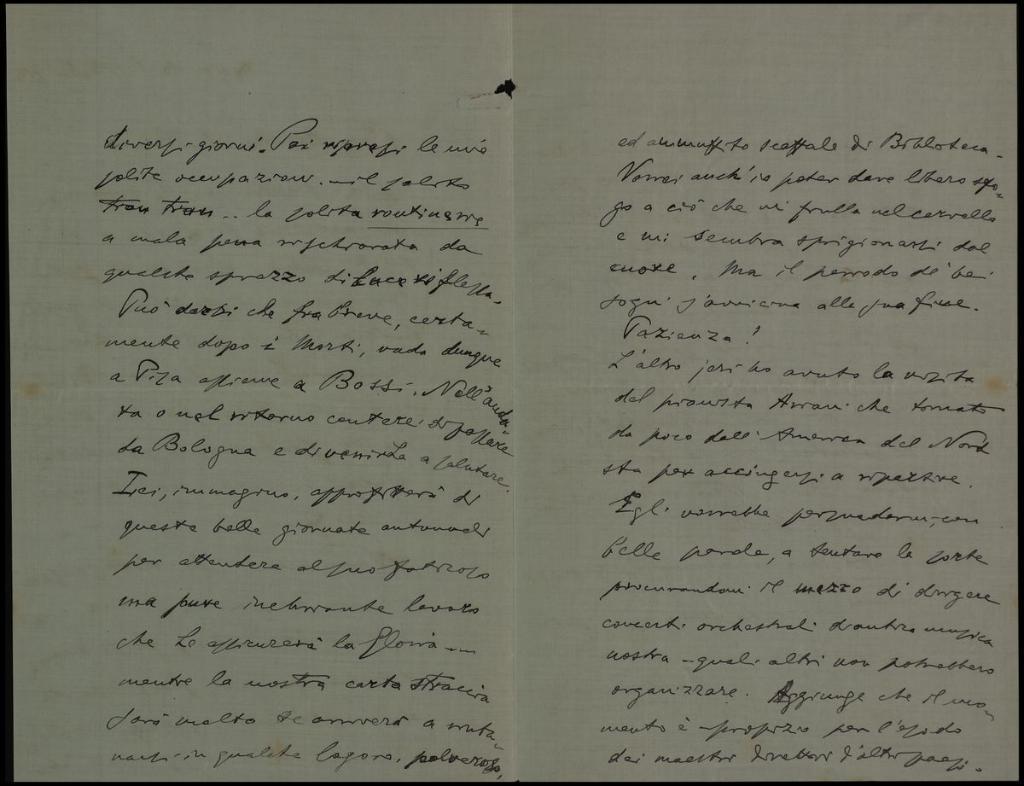 diversi giorni. Poi ripresi le mie
solite occupazioni. – il solito
tran tran .. la solita routinerie
a mala pena rischiarata da
qualche sprazzo di luce riflessa.
Può darsi che fra breve, certa-
mente dopo i Morti, vada dunque
a Pisa assieme a Bossi. Nell'anda-
ta o nel ritorno conterei di passare
da Bologna e di venirLa a salutare.
Lei, immagino, approfitterà di
queste belle giornate autunnali
per attendere al suo faticoso
ma pure inebriante lavoro
che Le assicurerà la gloria ....
mentre la nostra carta straccia
sarà molto se arriverà a
in qualche logoro, polveroso,
ed ammuffito scaffale di Biblioteca.
Vorrei anch'io poter dare libero sfo-
go a ciò che mi frulla nel cervello
e mi sembra sprigionarsi dal
cuore. Ma il periodo de' bei
sogni s'avvicina alla sua fine.
Pazienza!
L'altro jeri ho avuto la visita
del pianista che tornato
da poco dall'America del Nord
sta per accingersi a ripartire.
Egli vorrebbe persuadermi, con
belle parole, a tentare la sorte
procurandomi il mezzo di dirigere
concerti orchestrali d'antica musica
nostra – quali altri non potrebbero
organizzare. Aggiunge che il mo-
mento è propizio per l'esodo
dei maestri direttori d'altri paesi.